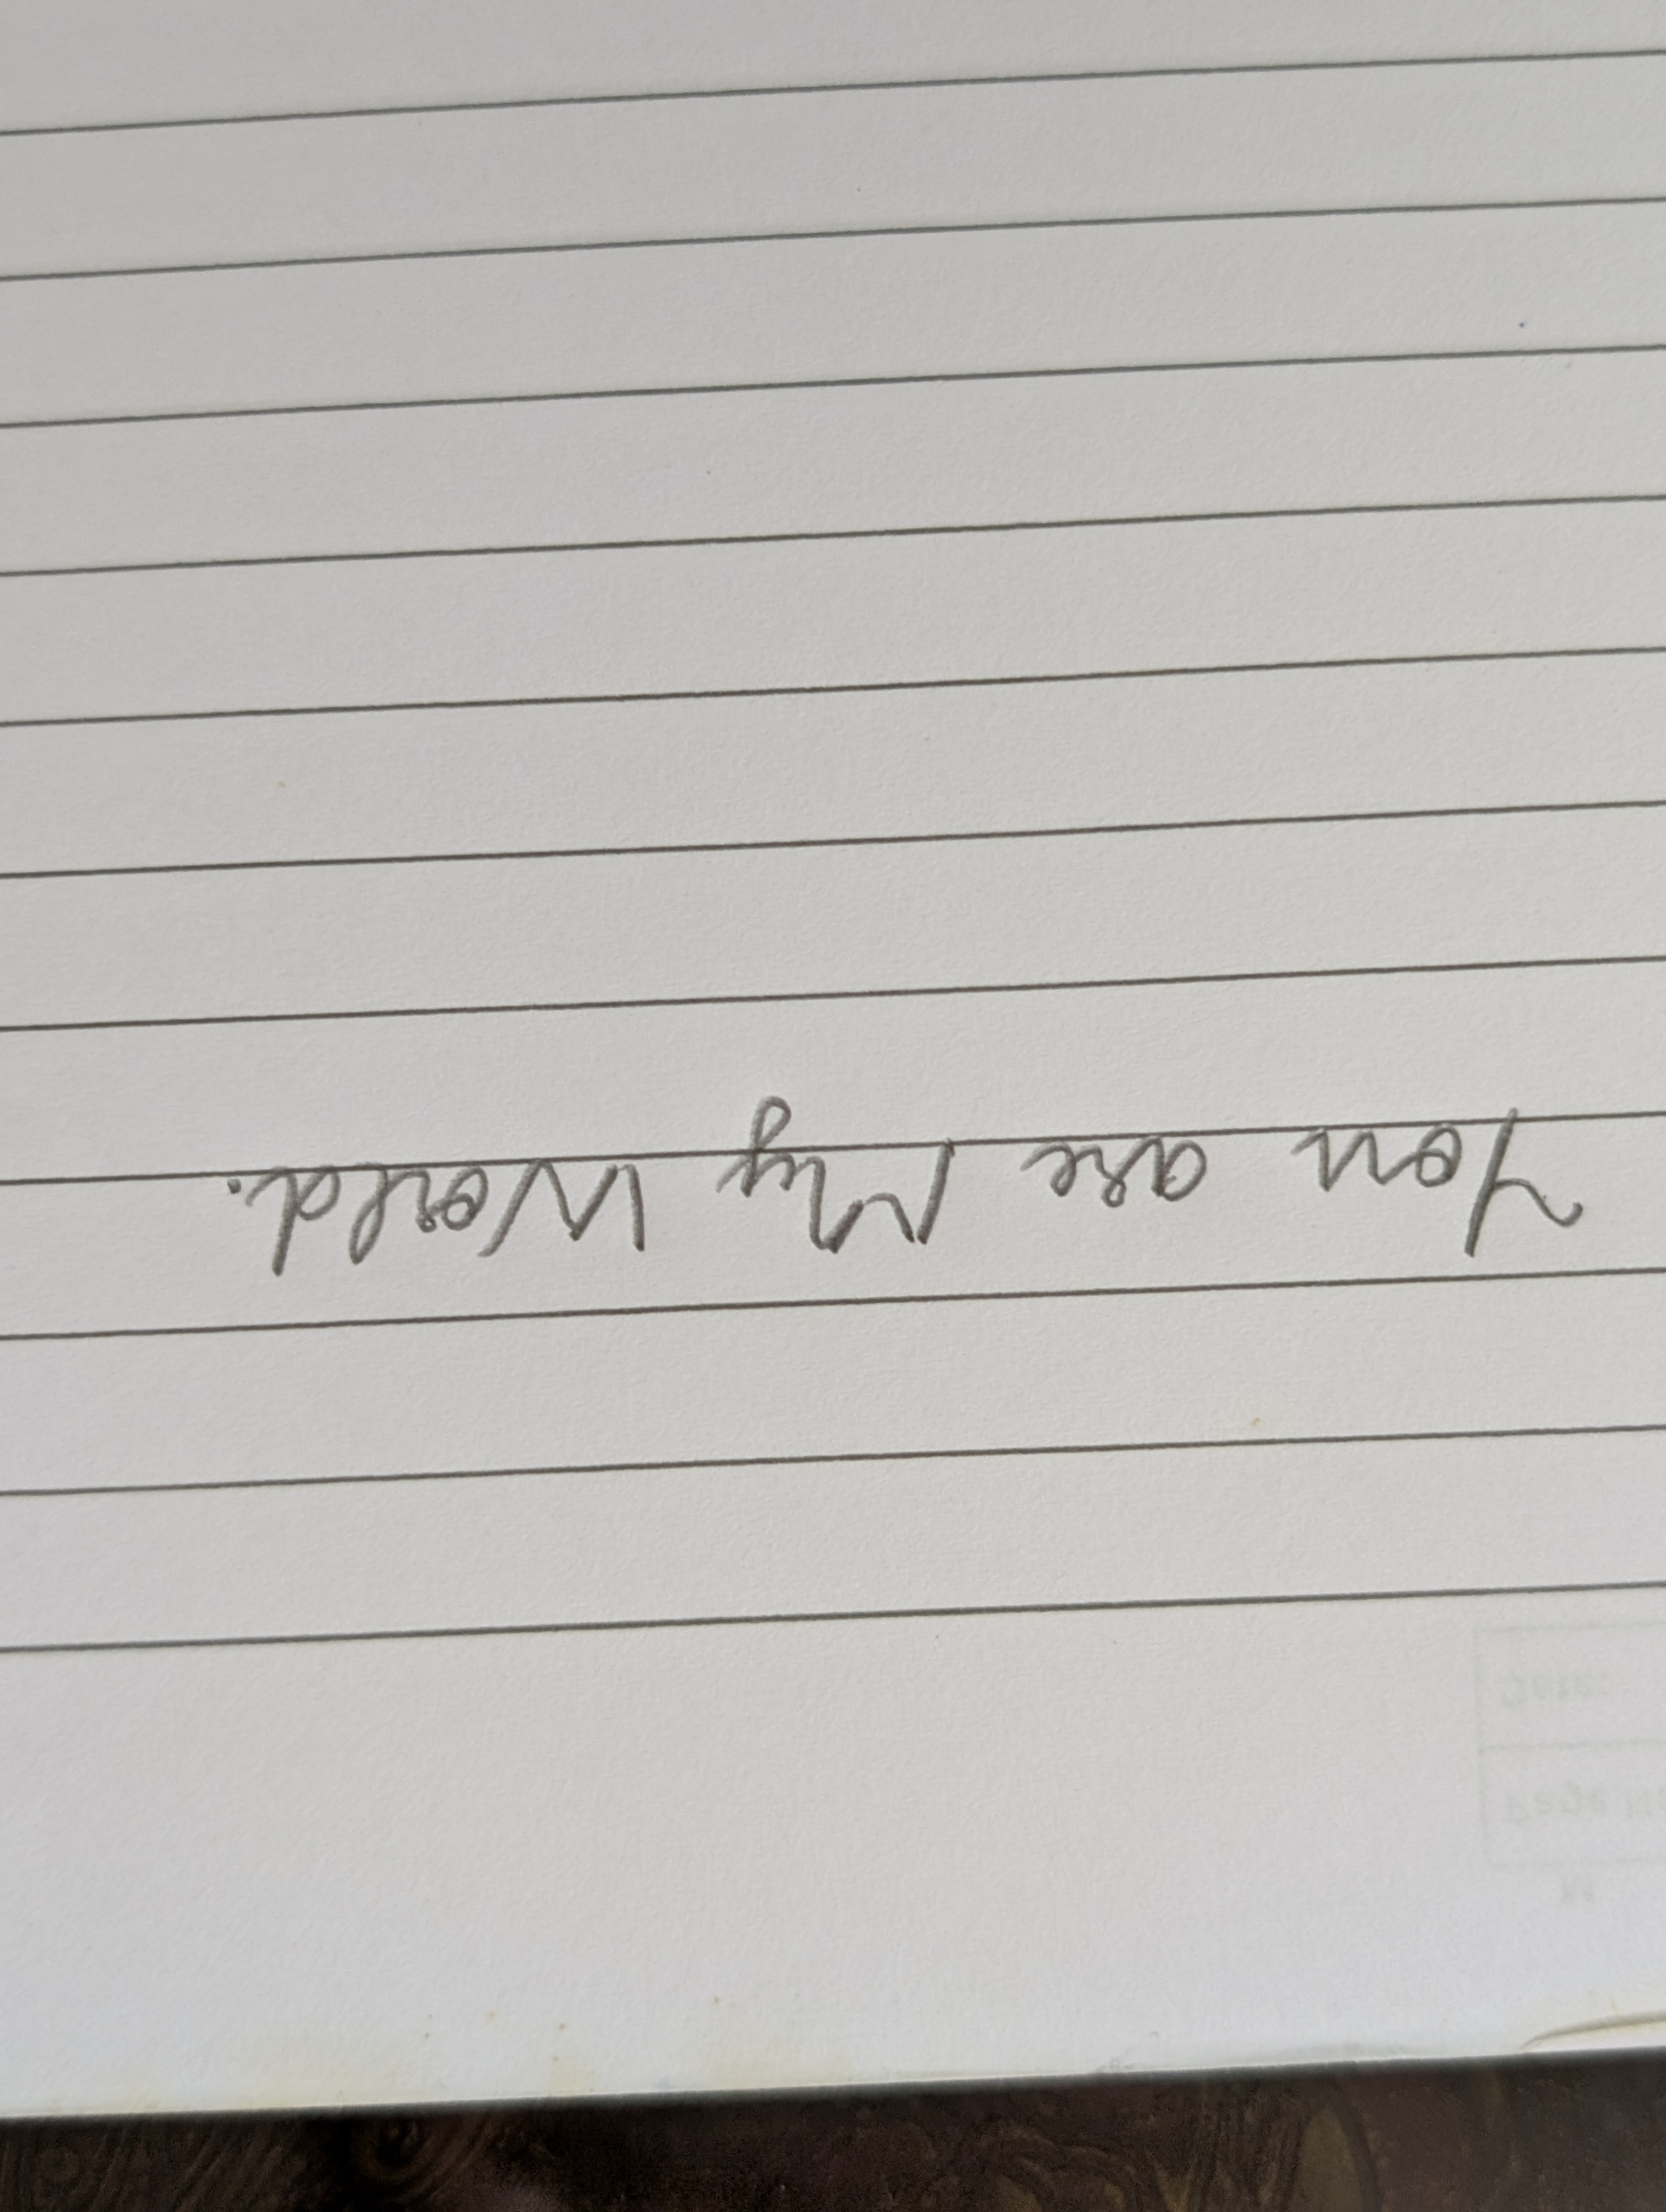 You are My World.